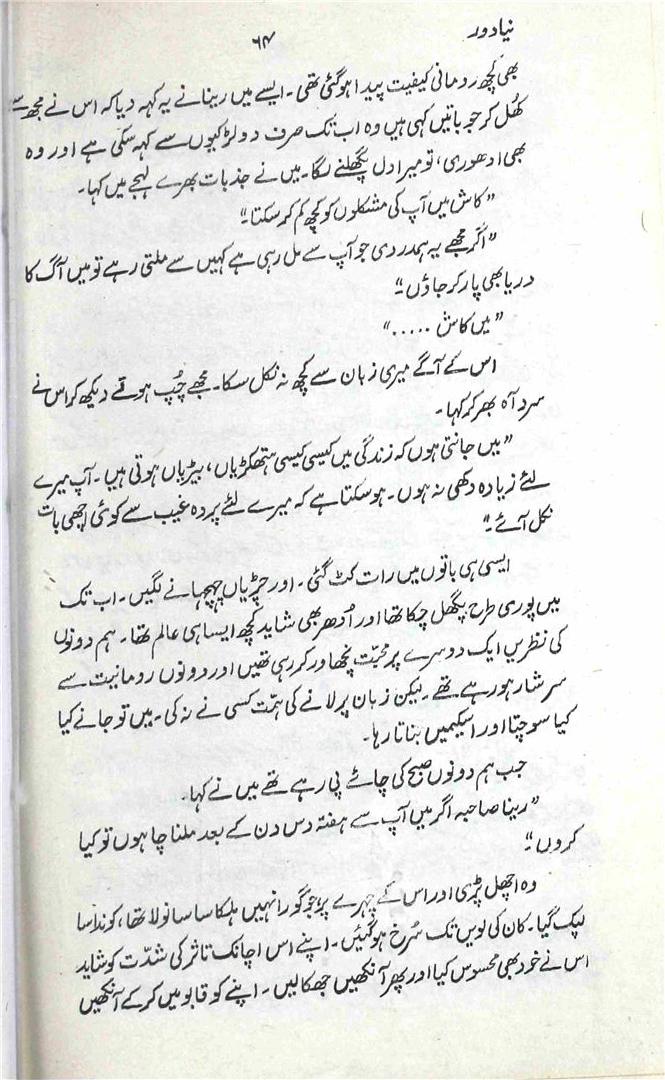 نیا دور
۶۴
بھی کچھ رومانی کیفیت پیدا ہوگئی تھی۔ ایسے میں رینا نے یہ کہہ دیا کہ اس نے مجھ سے
کھُل کر جو باتیں کہی ہیں وہ اب تک صرف دو لڑکیوں سے کہہ سکی ہے اور وہ
بھی ادھوری، تو میرا دل پگھلنے لگا۔ میں نے جذبات بھرے لہجے میں کہا۔
”کاش میں آپ کی مشکلوں کو کچھ کم کر سکتا۔“
”اگر مجھے یہ ہمدردی جو آپ سے مل رہی ہے کہیں سے ملتی رہے تو میں آگ کا
دریا بھی پار کر جاؤں۔“
”میں کاش .....“
اس کے آگے میری زبان سے کچھ نہ نکل سکا۔ مجھے چُپ ہوتے دیکھ کر اس نے
سرد آہ بھر کر کہا۔
”میں جانتی ہوں کہ زندگی میں کیسی کیسی ہتھکڑیاں، بیڑیاں ہوتی ہیں۔ آپ میرے
لئے زیادہ دکھی نہ ہوں۔ ہو سکتا ہے کہ میرے لئے پردہ غیب سے کوئی اچھی بات
نکل آئے۔“
ایسی ہی باتوں میں رات کٹ گئی۔ اور چڑیاں چہچہانے لگیں۔ اب تک
میں پوری طرح پگھل چکا تھا اور اُدھر بھی شاید کچھ ایسا ہی عالم تھا۔ ہم دونوں
کی نظریں ایک دوسرے پر محبّت نچھاور کر رہی تھیں اور دونوں رومانیت سے
سرشار ہو رہے تھے۔ لیکن زبان پر لانے کی ہمّت کسی نے نہ کی۔ میں تو جانے کیا
کیا سوچتا اور اسکیمیں بناتا رہا۔
جب ہم دونوں صبح کی چائے پی رہے تھے میں نے کہا۔
”رینا صاحبہ اگر میں آپ سے ہفتہ دس دن کے بعد ملنا چاہوں تو کیا
کروں۔“
وہ اچھل پڑی اور اس کے چہرے پر، جو گورا نہیں ہلکا سا سانولا تھا، کوندا سا
لپک گیا۔ کان کی لویں تک سُرخ ہوگئیں۔ اپنے اس اچانک تاثر کی شدّت کو شاید
اس نے خود بھی محسوس کیا اور پھر آنکھیں جھکا لیں۔ اپنے کو قابو میں کر کے آنکھیں